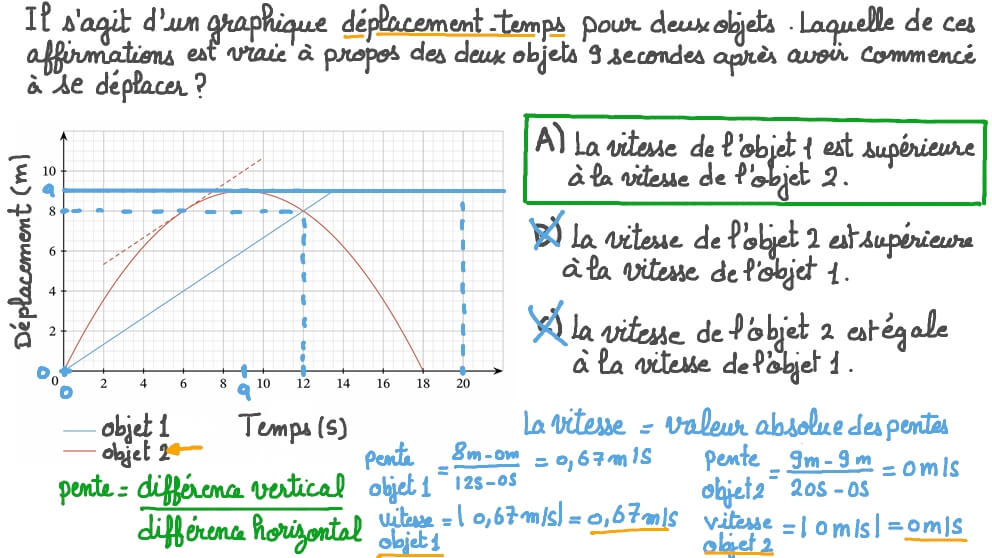 Il s'agit d'un graphique déplacement-temps pour deux objets. Laquelle de ces
affirmations est vraie à propos des deux objets 9 secondes après avoir commencé
à se déplacer ?
A) La vitesse de l'objet 1 est supérieure
à la vitesse de l'objet 2.
B) La vitesse de l'objet 2 est supérieure
à la vitesse de l'objet 1.
C) La vitesse de l'objet 2 est égale
à la vitesse de l'objet 1.
Déplacement (m)
10
9
8
6
4
2
0
0
0
2
4
6
8
9
10
12
14
16
18
20
Temps (s)
objet 1
objet 2
La vitesse = valeur absolue des pentes
pente = différence vertical
différence horizontal
pente objet 1 = 8m-0m / 12s-0s = 0,67 m/s
vitesse objet 1 = | 0,67 m/s| = 0,67 m/s
pente objet 2 = 9m-9m / 20s-0s = 0 m/s
vitesse objet 2 = | 0 m/s| = 0 m/s